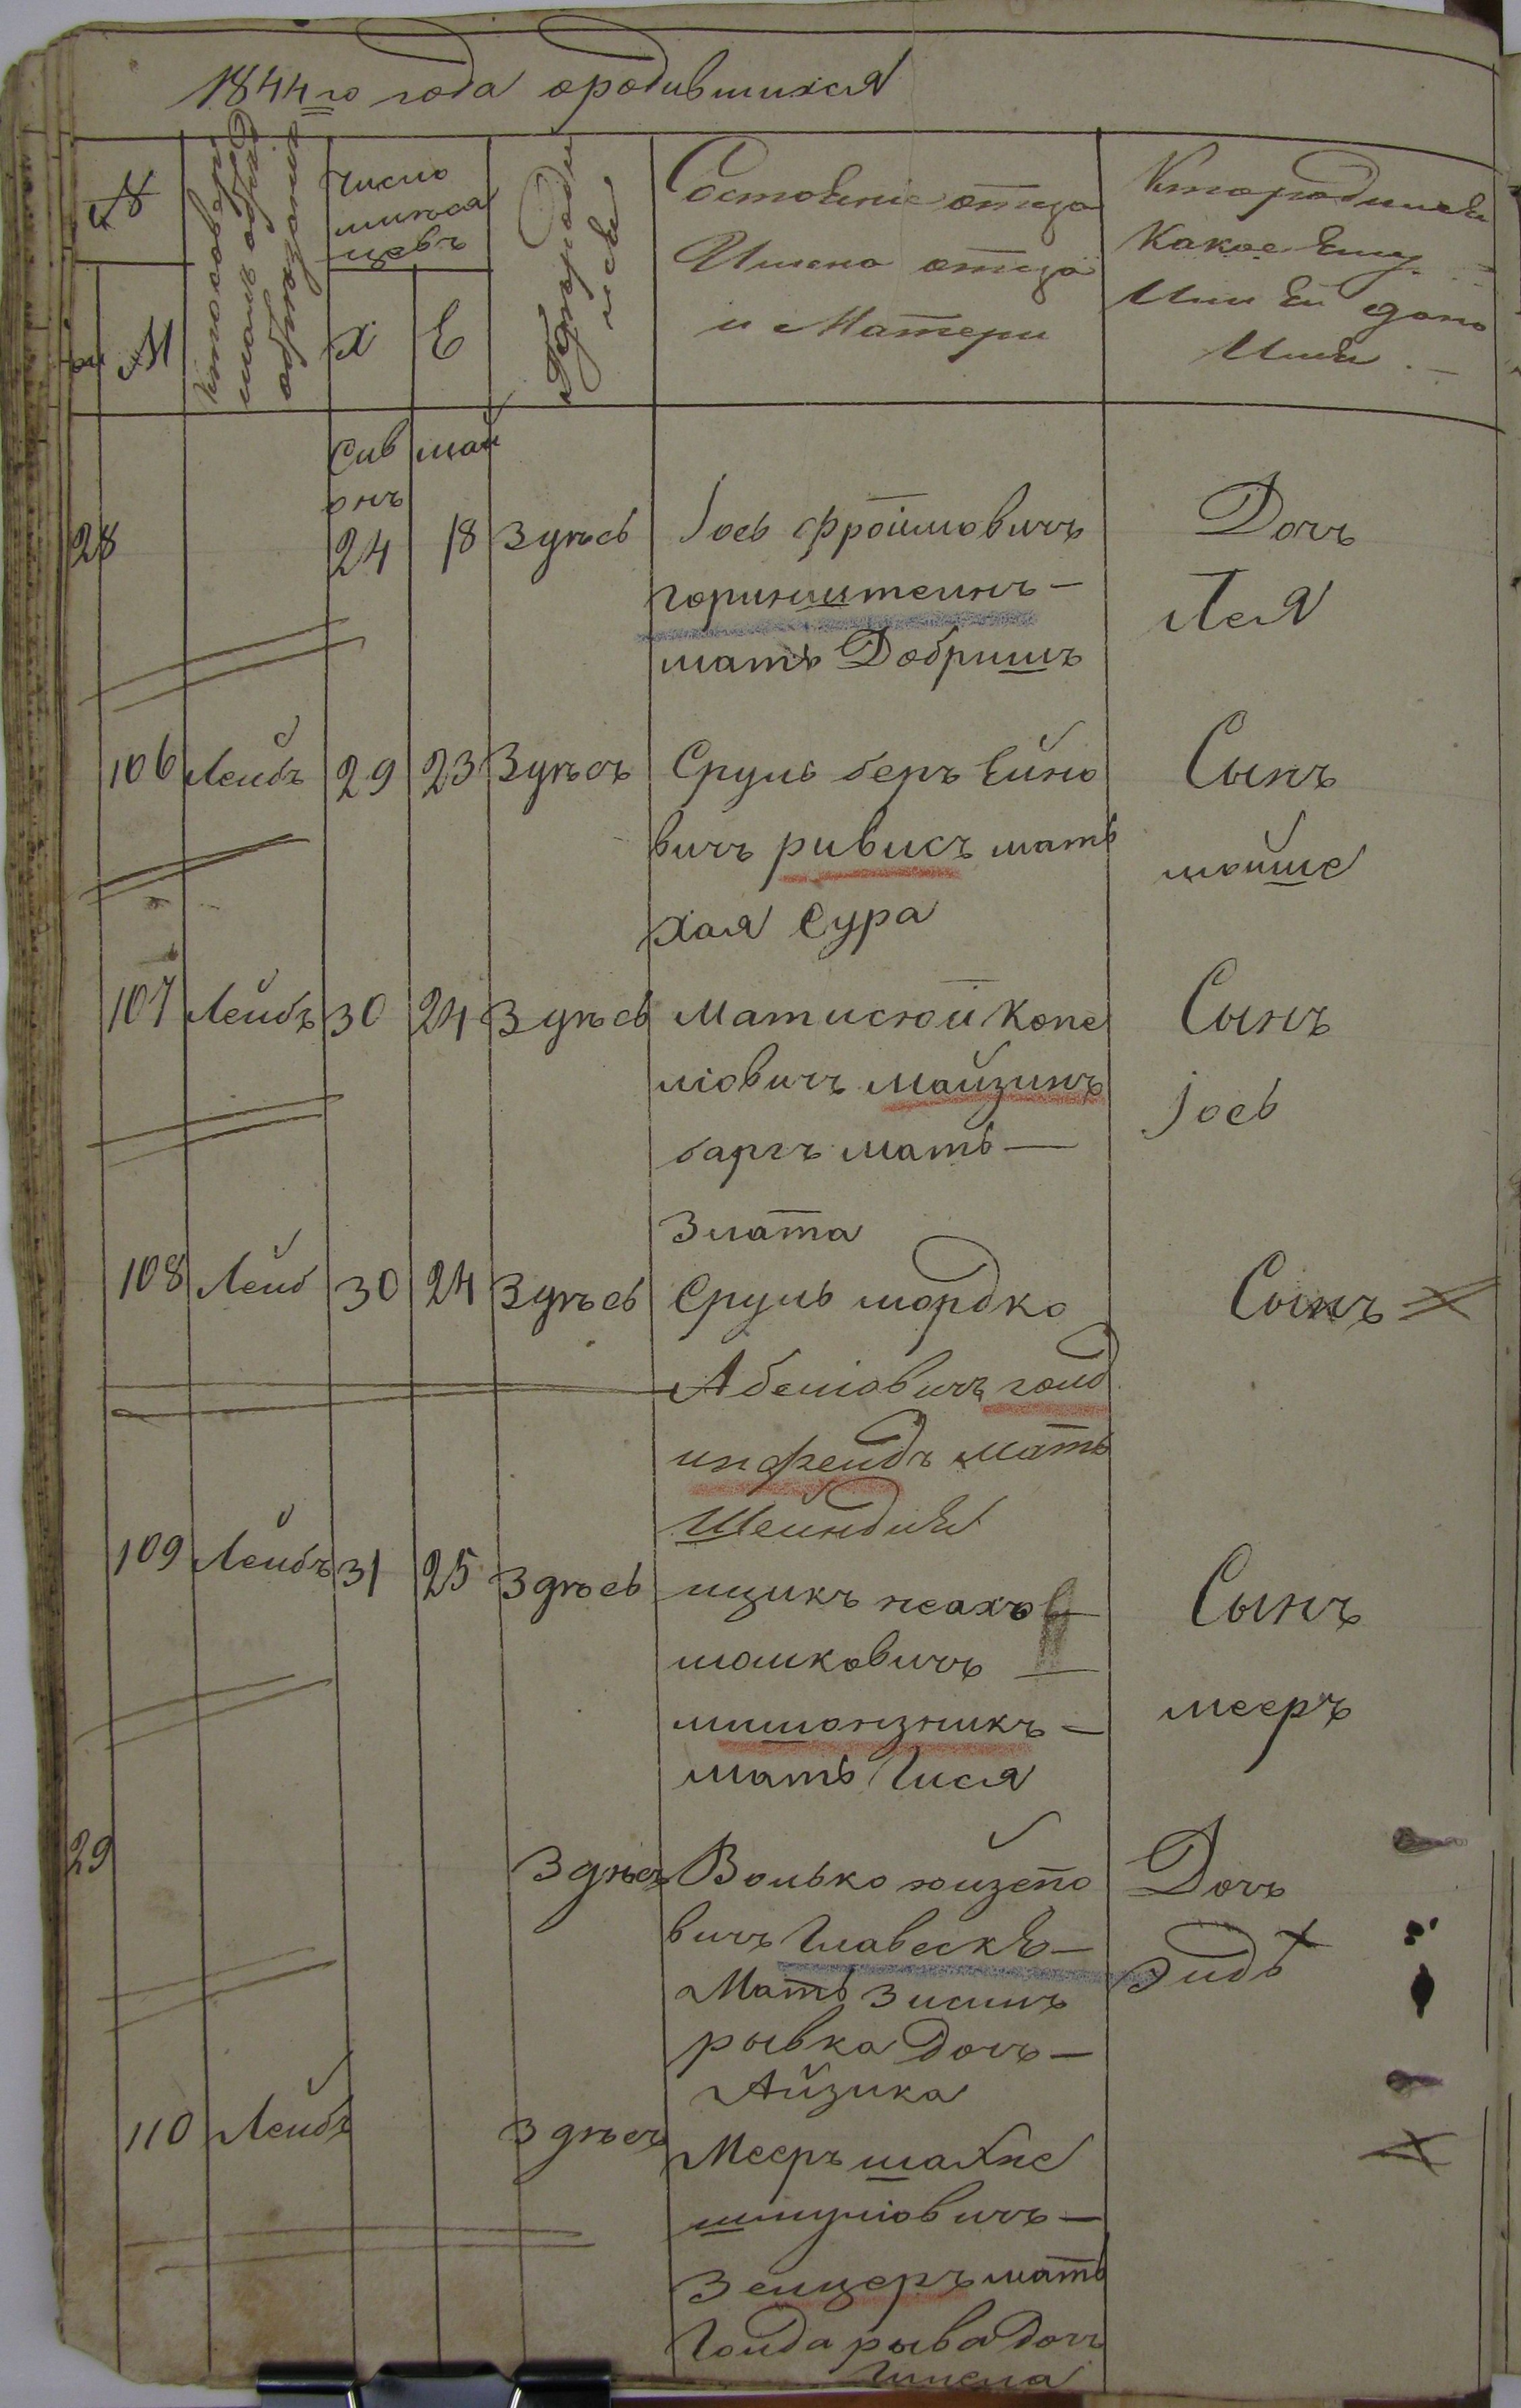 1844го года ородившихся
№
Кто совер
шалъ обряд
обрѣзанія
Число
мѣся
цевъ
Где роди
лся
Состояніе отца
Имена отца
и Матери
Кто родился
Какое Ему
Или Ей дано
Имя
М
Х
Е
Сив
онъ
май
28
24
18
Здѣсь
Іось Фроимовичъ
горинштеинъ —
мать Добришъ
Дочъ
Лея
106
Лейбъ
29
23
Здѣсъ
Сруль беръ Ейно
вичъ ривисъ мать
хая Сура
Сынъ
мойше
107
Лейбъ
30
24
Здѣсь
Матисюи Копе
лiовичъ майзинъ
баргъ мать —
Злата
Сынъ
Іось
108
Лейб
30
24
Здѣсь
Сруль мордко
Абелiовичъ голд
инфелдъ мать
Шейндля
Сынъ
109
Лейбъ
31
25
Здѣсь
ицикъ несахъ
мошковичъ —
мишонзникъ —
мать Гися
Сынъ
мееръ
29
Здѣсъ
Волько
вичъ
Мать Зисль
рывка Дочъ —
Айзика
Дочъ
Эидь
110
Лейбъ
Здѣсъ
Мееръ шахне
шмулiовичъ —
Зелцеръ мать
Голда рыва Дочъ